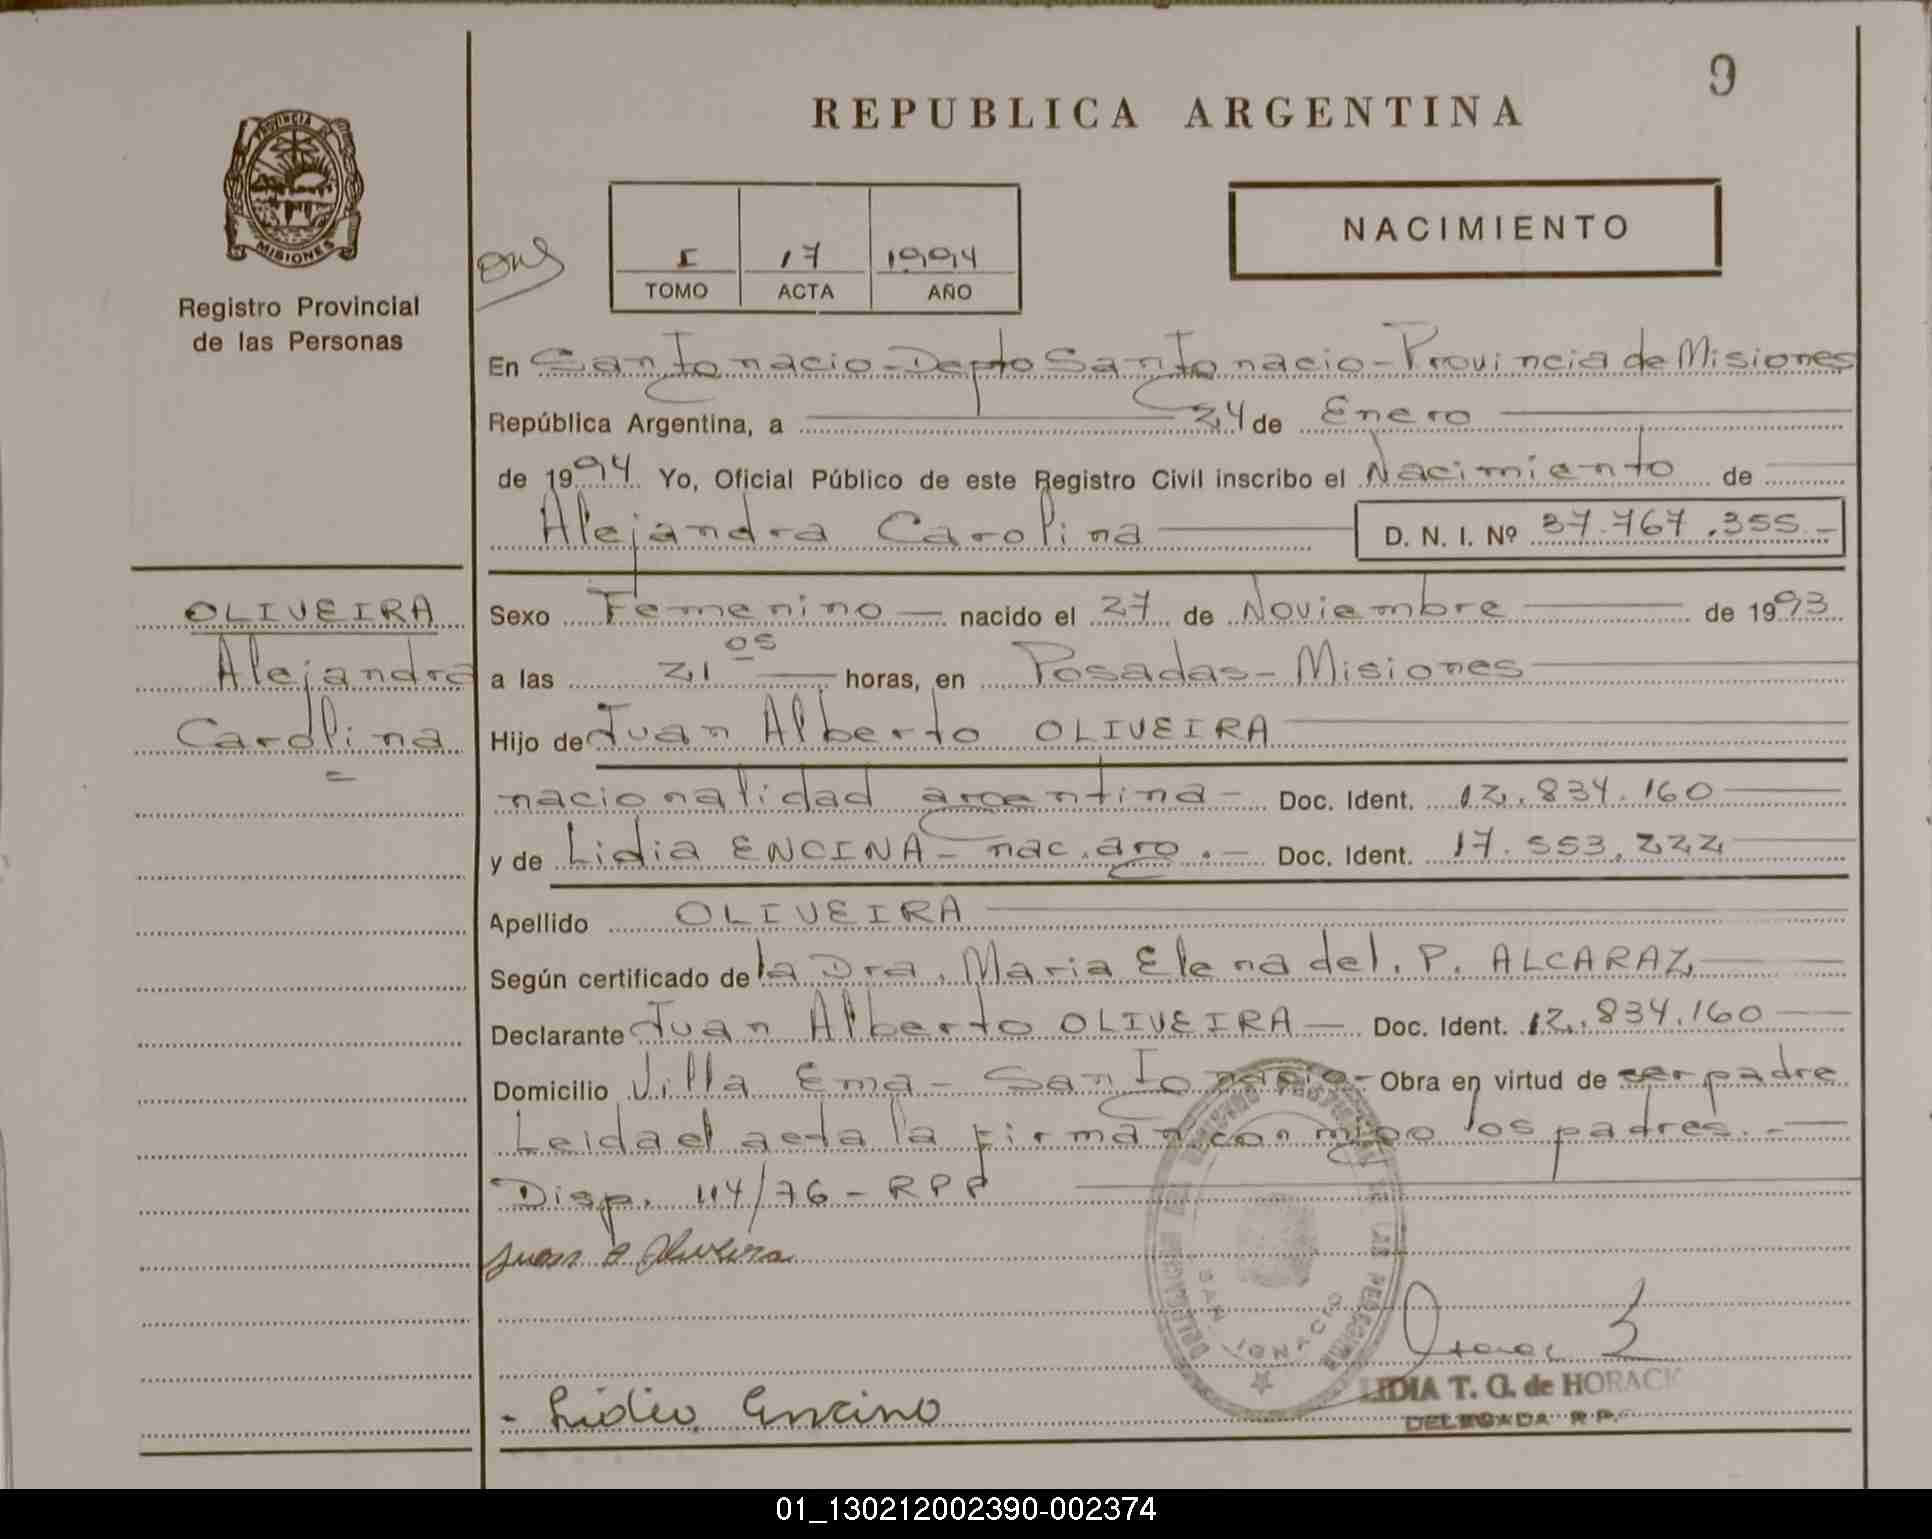 9
REPUBLICA ARGENTINA
PROVINCIA DE
MISIONES
Registro Provincial
de las Personas
NACIMIENTO
I 17 1994
TOMO ACTA AÑO
En San Ignacio - Depto San Ignacio - Provincia de Misiones
República Argentina, a 24 de Enero
de 1994. Yo, Oficial Público de este Registro Civil inscribo el Nacimiento de
Alejandra Carolina D. N. I. Nº 37.767.355.-
OLIVEIRA
Alejandra
Carolina
=
Sexo Femenino nacido el 27 de Noviembre de 1993
a las 21 05 horas, en Posadas - Misiones
Hijo de Juan Alberto OLIVEIRA
nacionalidad argentina - Doc. Ident. 12.834.160
y de Lidia ENCINA - nac. arg. - Doc. Ident. 17.553.222
Apellido OLIVEIRA
Según certificado de la Dra. Maria Elena del. P. ALCARAZ
Declarante Juan Alberto OLIVEIRA - Doc. Ident. 12.834.160
Domicilio Villa Ema - San Ignacio - Obra en virtud de ser padre
Leida el acta la firman conmigo los padres. -
Disp. 114/76 - RPP
Juan A Oliveira
SAN IGNACIO
LIDIA T. G. de HORACK
DELEGADA R.P.
- Lidia Encina
01_130212002390-002374